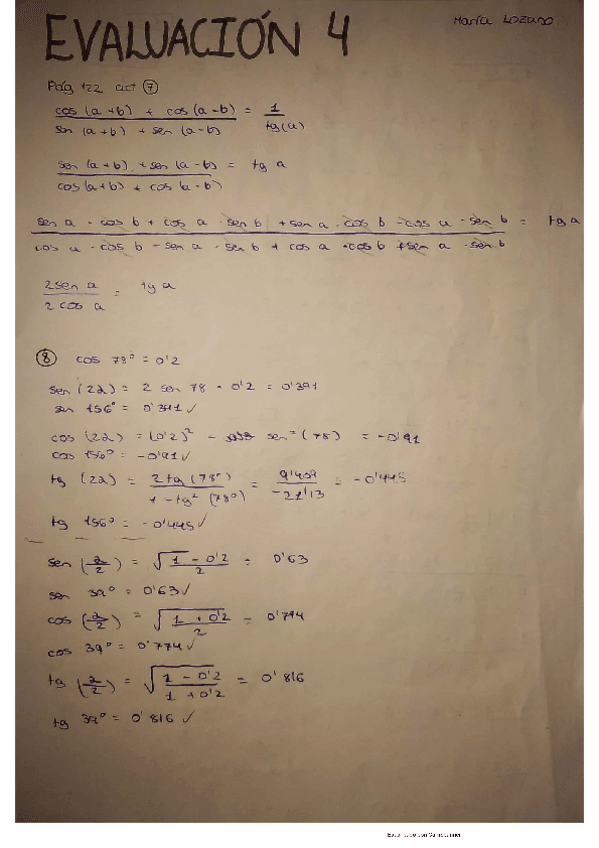 EVALUACIÓN 4
María Lozano
Pág 122 act ⑦
cos (a+b) + cos (a-b) = 1
sen (a+b) + sen (a-b) tg(a)
sen (a+b) + sen (a-b) = tg a
cos (a+b) + cos (a-b)
sen a · cos b + cos a · sen b + sen a · cos b - cos a · sen b = tg a
cos a · cos b - sen a · sen b + cos a · cos b + sen a · sen b
2 sen a = tg a
2 cos a
⑧ cos 78° = 0'2
sen (2α) = 2 sen 78 · 0'2 = 0'391
sen 156° = 0'391 ✓
cos (2α) = (0'2)² - sen² (78) = -0'91
cos 156° = -0'91 ✓
tg (2α) = 2 tg (78°) = 9'409 = -0'445
1 - tg² (78°) -21'13
tg 156° = -0'445 ✓
sen (α/2) = √ 1 - 0'2 = 0'63
2
sen 39° = 0'63 ✓
cos (α/2) = √ 1 + 0'2 = 0'774
2
cos 39° = 0'774 ✓
tg (α/2) = √ 1 - 0'2 = 0'816
1 + 0'2
tg 39° = 0'816 ✓